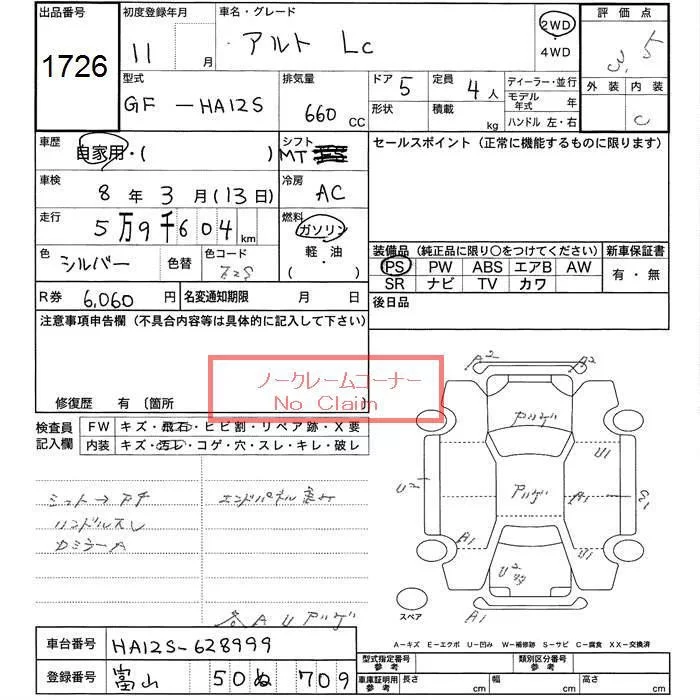 出品番号
1726
初度登録年月
11 月
車名・グレード
アルト Lc
2WD
・
4WD
評価点
3.5
外装 内装
C
型式
GF - HA12S
排気量
660 CC
ドア 5
定員 4 人
形状
積載 kg
ディーラー・並行
モデル年式 年
ハンドル 左・右
車歴
自家用・( )
シフト
MT
セールスポイント (正常に機能するものに限ります)
車検
8 年 3 月 (13 日)
冷房
AC
走行
5万9千604 km
燃料
ガソリン
軽・油
( )
色
シルバー
色替
色コード
Z2S
装備品 (純正品に限り〇をつけてください)
新車保証書
PS PW ABS エアB AW
有・無
SR ナビ TV カワ
R券 6,060 円
名変通知期限 月 日
後日品
注意事項申告欄 (不具合内容等は具体的に記入して下さい)
ノークレームコーナー
No Claim
修復歴 有 〔箇所
検査員記入欄
FW キズ・飛石・ヒビ割・リペア跡・X要
内装 キズ・汚レ・コゲ・穴・スレ・キレ・破レ
ハンドルスレ
A2
A2
アリゲ
U1
U2
アリゲ
A1
A1
U1
U2
A1
スペア
A-キズ E-エクボ U-凹み W-補修跡 S-サビ C-腐食 XX-交換済
車台番号 HA12S-628999
登録番号 富山 50 ぬ 709
型式指定番号 参考
類別区分番号 参考
車庫証明用 参考
長さ cm 幅 cm 高さ cm